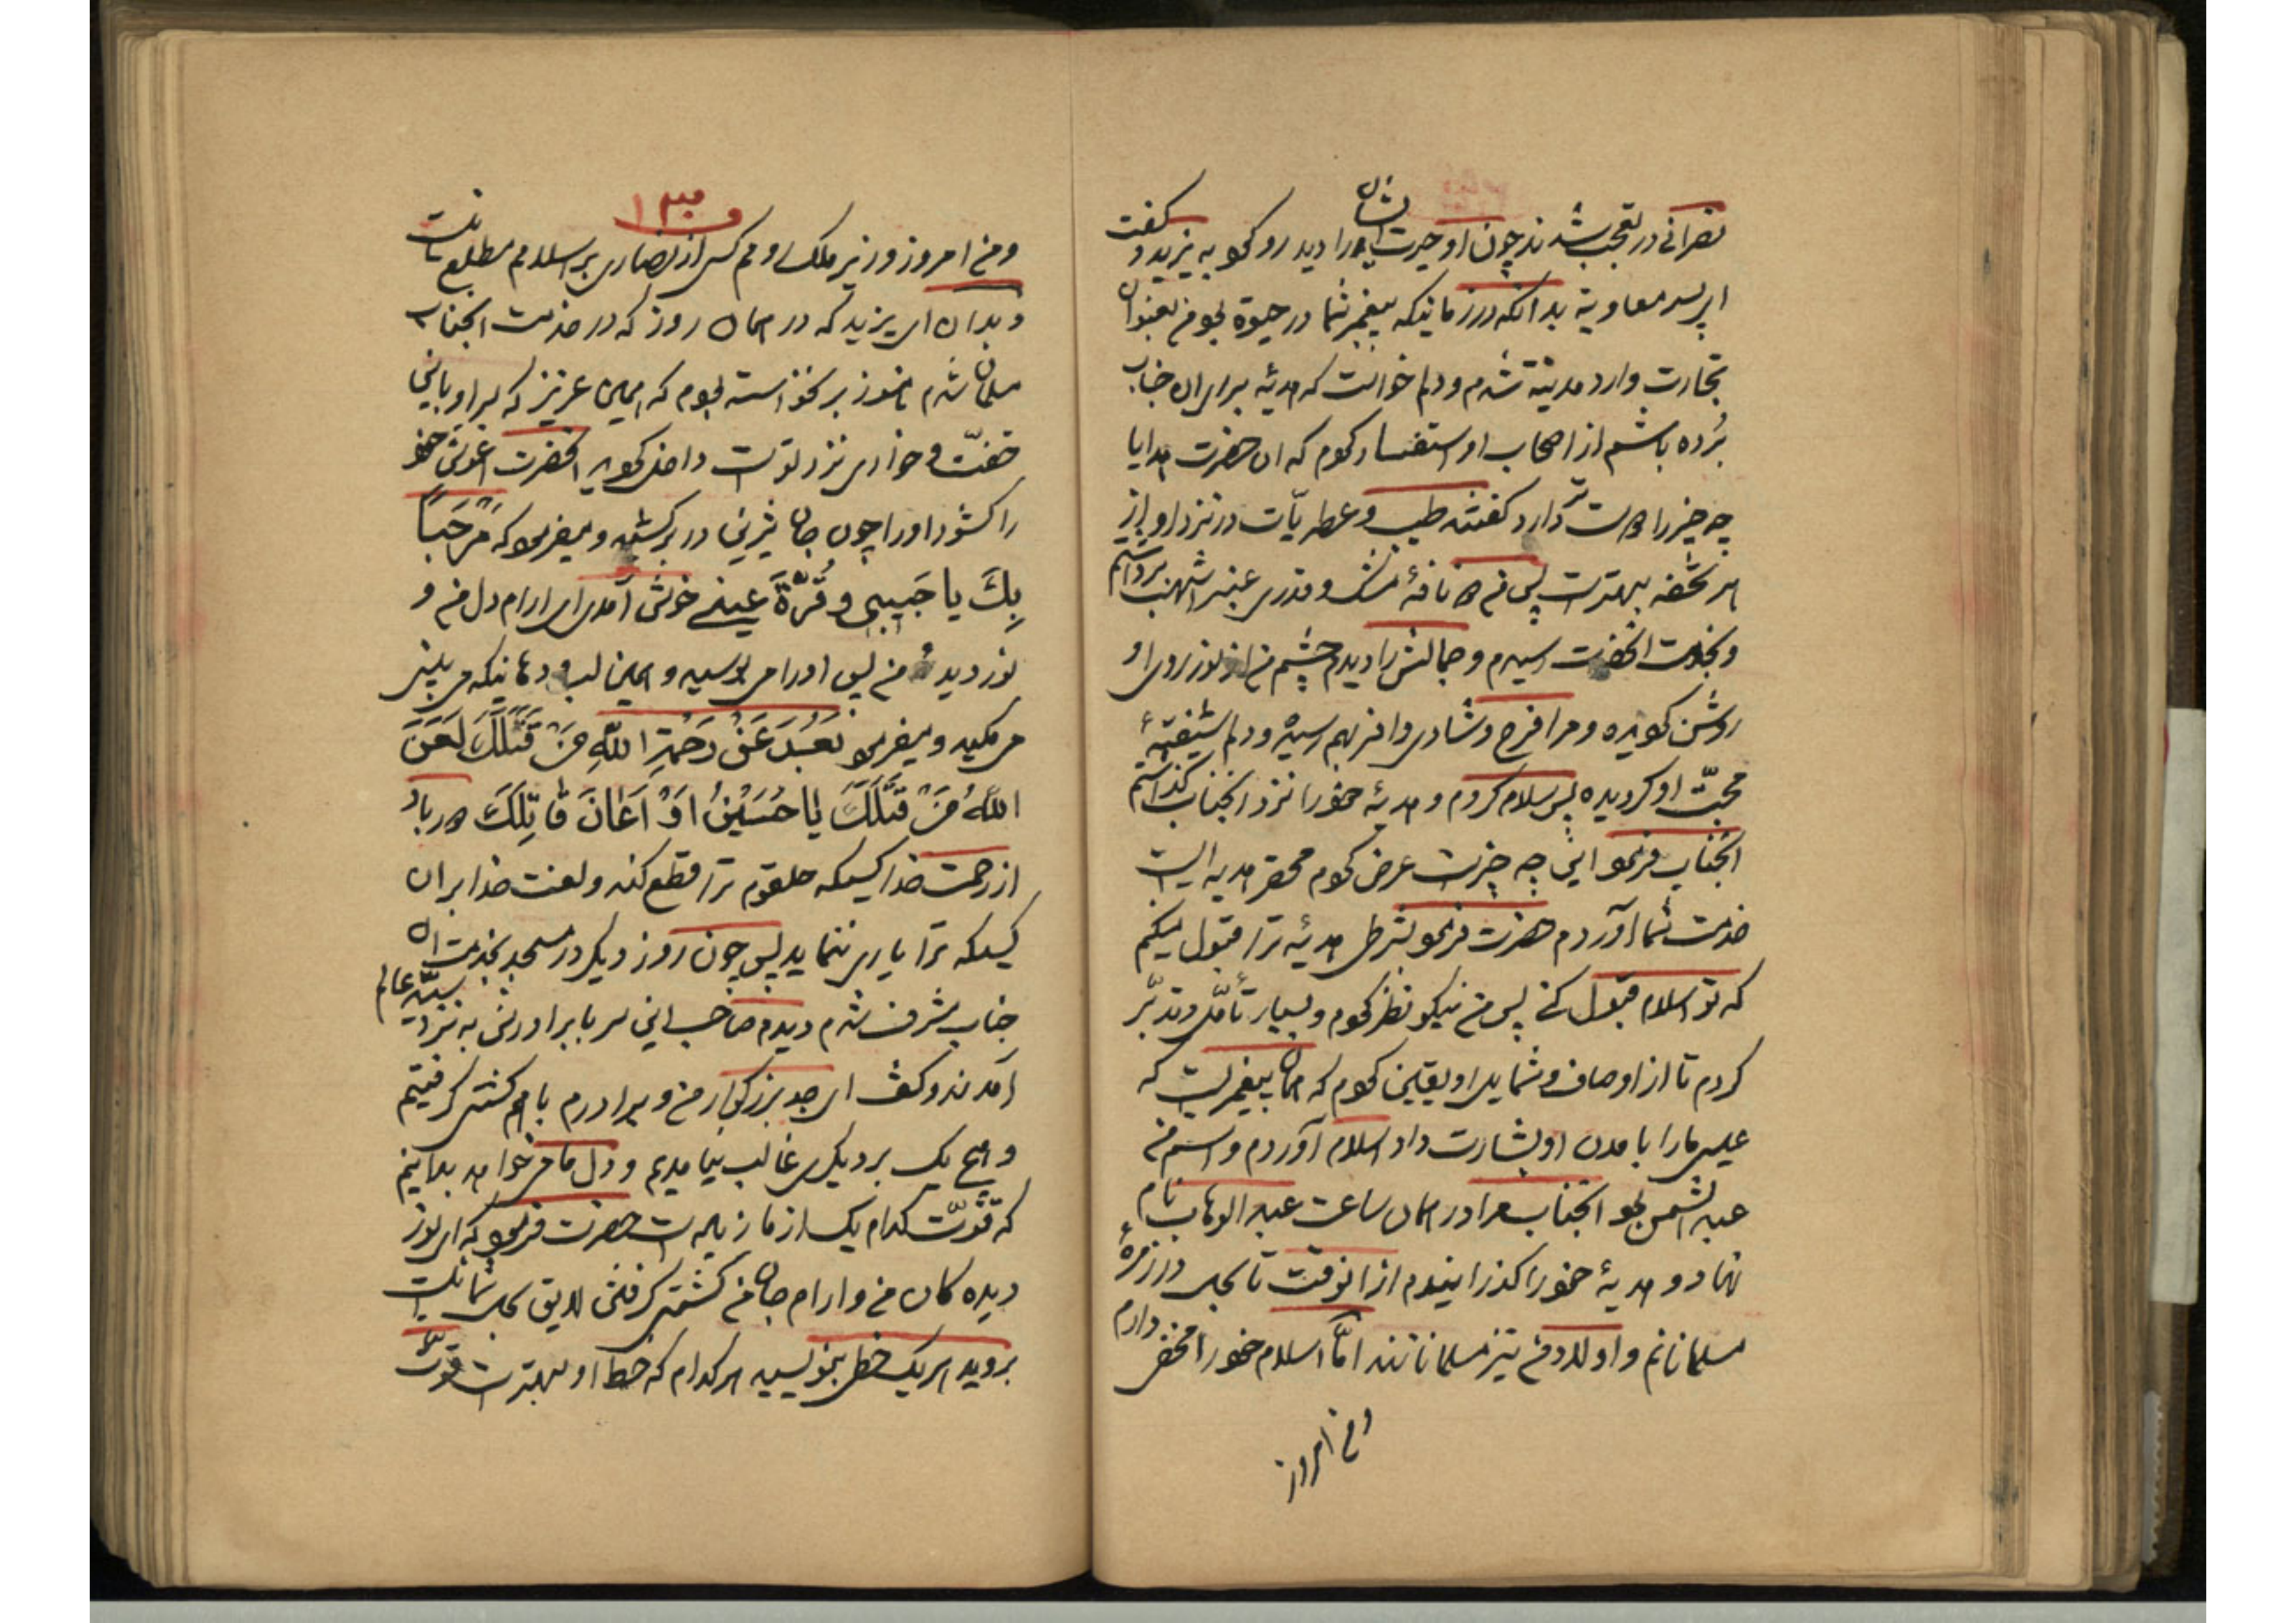 نصرانی در تعجب شدند چون او حیرت ایشان را دید رو کرد به یزید و گفت
ای پسر معاویه بدانکه در زمانیکه پیغمبر شما در حیوة بود من بعنوان
تجارت وارد مدینه شدم و دلم خواست که هدیهٔ برای ان جناب
بُرده باشم از اصحاب او استفسار کردم که ان حضرت از هدایا
چه چیز را دوست تر دارد گفتند طیب و عطریّات در نزد او از
هر تحفه بهتر است پس من دو نافهٔ مشک و قدری عنبر اشهب برداشتم
و بخدمت انحضرت رسیدم و جمالش را دیدم چشم من از نور روی او
روشن گردیده و مرا فرح و شادی وافر بهم رسید و دلم شیفتهٔ
محبّت او گردیده پس سلام کردم و هدیهٔ خود را نزد انجناب گذاشتم
انجناب فرمود این چه چیز است عرض کردم محقر هدیه ایست
خدمت شما آوردم حضرت فرمود بشرطی هدیهٔ ترا قبول میکنم
که تو اسلام قبول کنی پس من نیکو نظر کردم و بسیار تأمّل و تدبّر
کردم تا از اوصاف و شمایل او یقین کردم که همان پیغمبریست که
عیسی مارا بامدن او بشارت داد اسلام آوردم و اسم من
عبد الشمس بود انجناب مرا در همان ساعت عبد الوهاب نام
نهاد و هدیهٔ خود را گذرانیدم از انوقت تا بحال در زمرهٔ
مسلمانانم و اولاد من نیز مسلمانند امّا اسلام خود را مخفی دارم
و من امروز
۱۳۰
و من امروز وزیر ملک و هم کس از نصاری بر اسلام مطلع نیست
و بدان ای یزید که در همان روز که در خدمت انجناب
مسلمان شدم هنوز بر نخواسته بودم که همین عزیز که سر او باین
خفّت و خواری نزد تو است داخل گردید انحضرت اغوش خود
را گشود او را چون جان شیرین در بر کشید و میفرمود که مَرْحَباً
بِكَ یا حَبیبی وَ قُرَّةَ عَینی خوش آمدی ای ارام دل من و
نور دیدهٔ من پس او را می بوسید و همین لب و دهانیکه می بینی
می مکید و میفرمود بَعُدَ عَنْ رَحْمَةِ اللّٰهِ مَنْ قَتَلَكَ لَعَنَ
اللّٰهُ مَنْ قَتَلَكَ یا حُسَیْنُ اَوْ اَعانَ قاتِلَكَ دور باد
از رحمت خدا کسیکه حلقوم ترا قطع کند و لعنت خدا بر ان
کسیکه ترا یاری ننماید پس چون روز دیگر در مسجد بخدمت ان
جناب مشرف شدم دیدم صاحب این سر با برادرش به نزد سیّد عالم
آمدند و گفت ای جد بزرگوار من و برادرم با هم کشتی گرفتیم
و هیچ یک بر دیگری غالب نیامدیم و دل ما میخواهد بدانیم
که قوّت کدام یک از ما زیاد است حضرت فرمود که ای نور
دیده کان من و ارام جان من کشتی گرفتن لایق بحال شما نیست
بروید هر یک خطی بنویسید هر کدام که خط او بهتر است قوّت